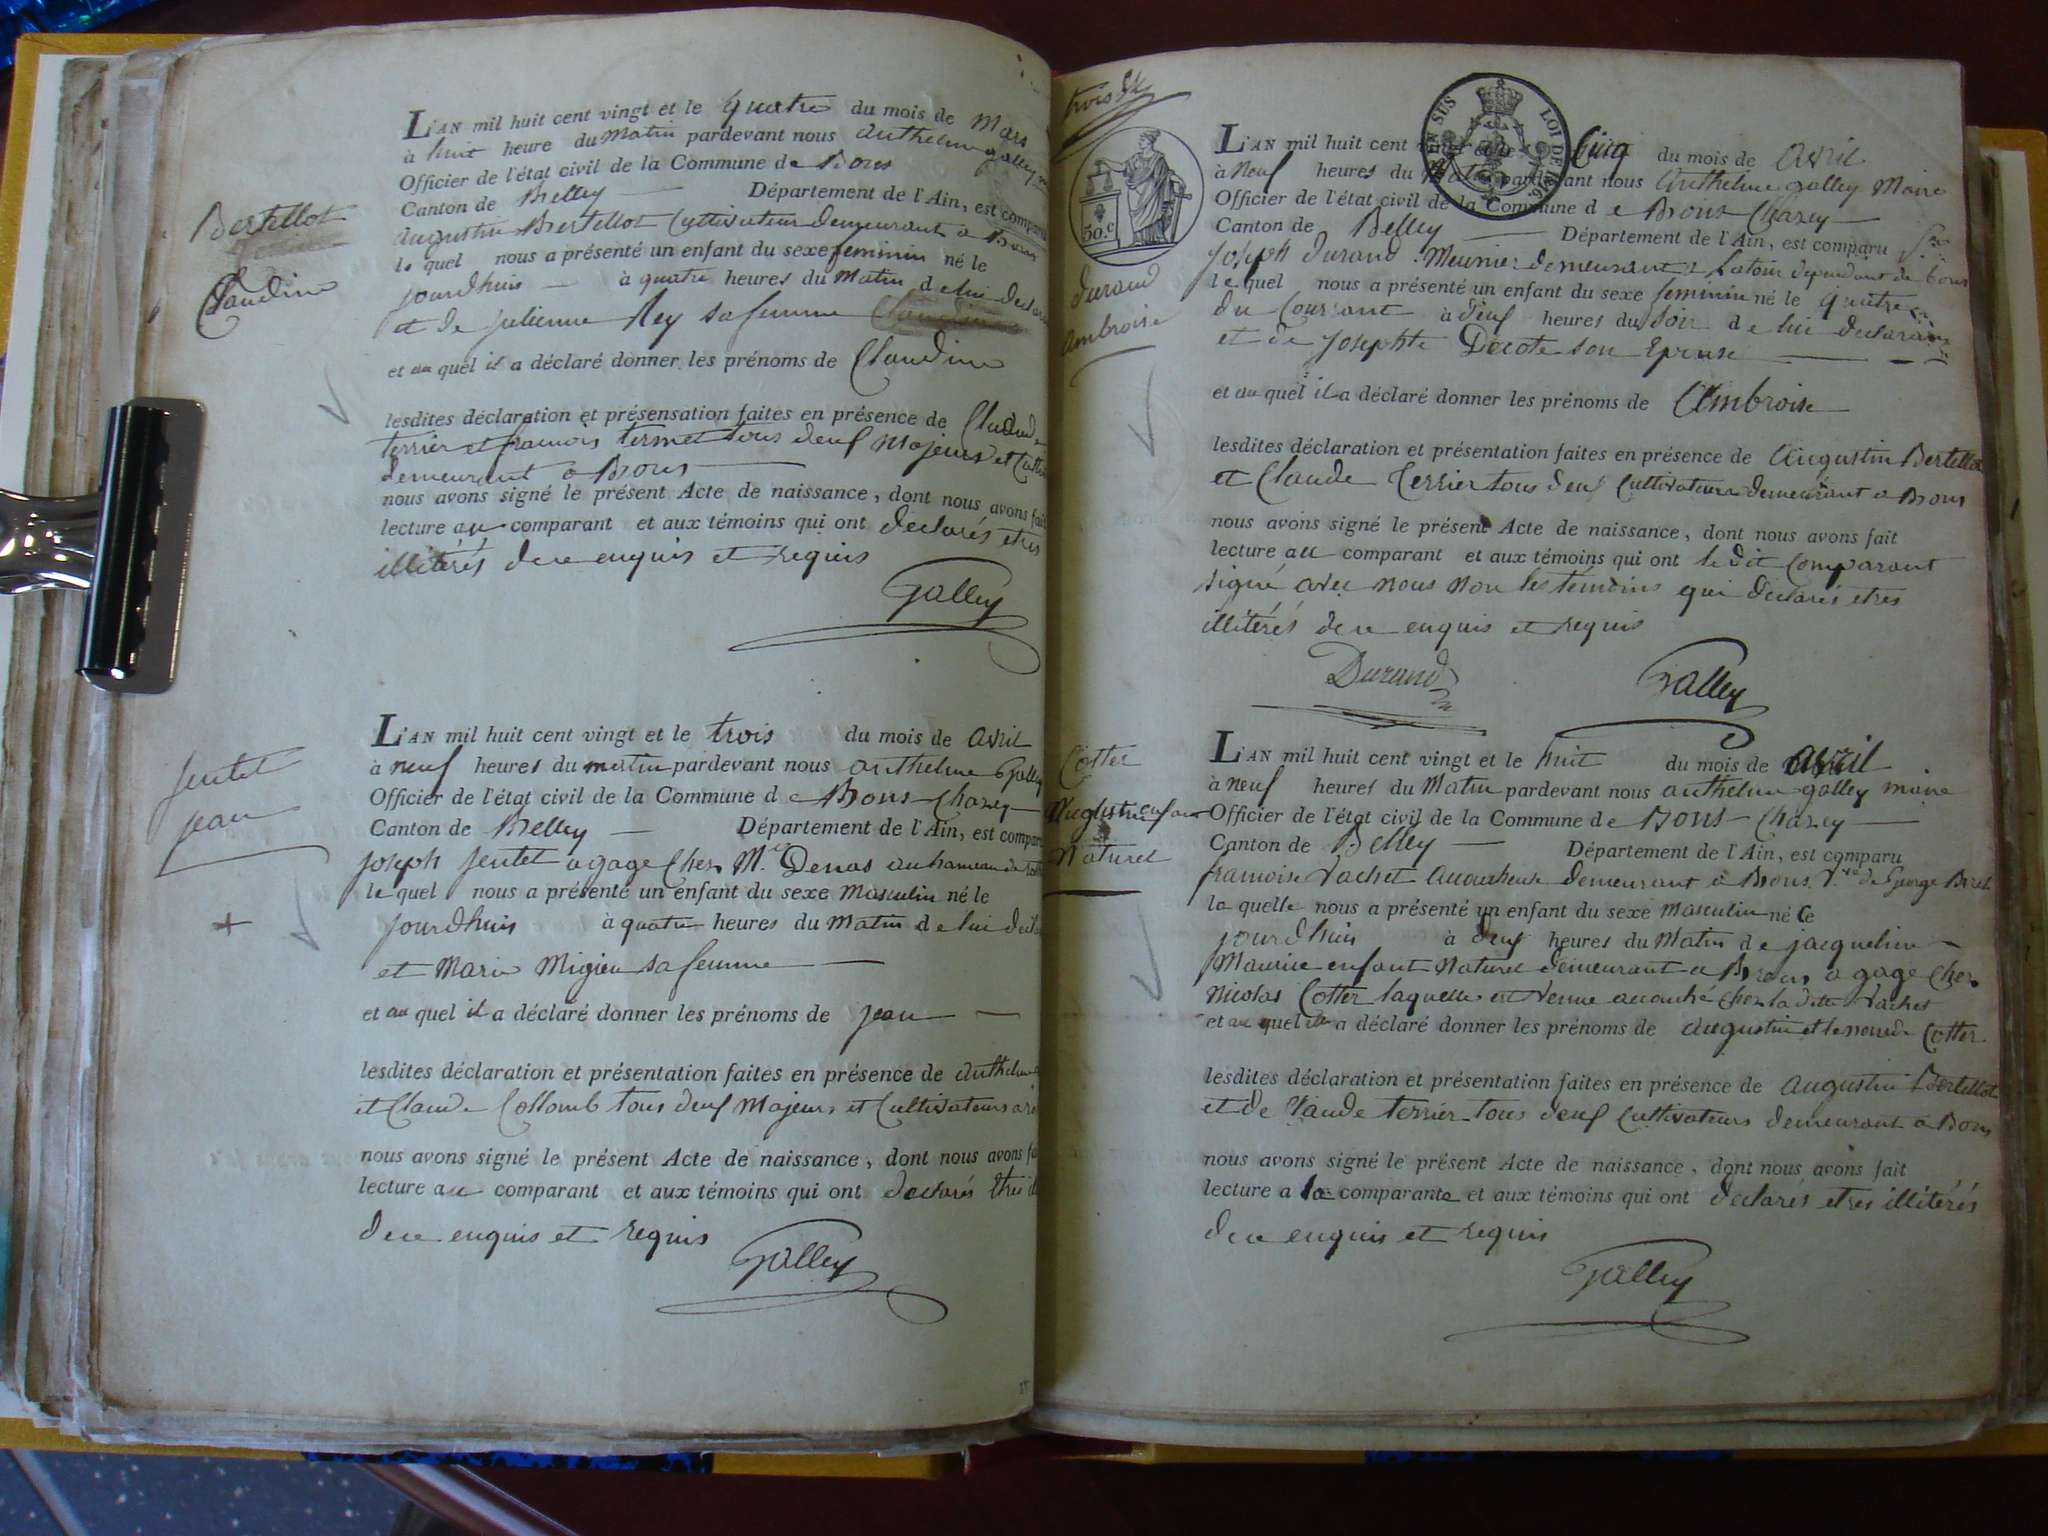 Bertellot
Claudine
L'AN mil huit cent vingt et le quatre du mois de Mars
à huit heure du matin pardevant nous anthelme galley
Officier de l'état civil de la Commune de Bons
Canton de Belley Département de l'Ain, est comparu
augustin Bertellot Cultivateur demeurant a Bons
le quel nous a présenté un enfant du sexe feminin né le
jourdhuis à quatre heures du Matin de lui declarant
et de julienne Rey sa femme
et au quel il a déclaré donner les prénoms de Claudine
lesdites déclaration et présensation faites en présence de Claude
terrier et francois termet tous deux Majeurs et
demeurant a Bons
nous avons signé le présent Acte de naissance, dont nous avons fait
lecture au comparant et aux témoins qui ont declarés etres
illitérés de ce enquis et requis
Galley
jentet
jean
L'AN mil huit cent vingt et le trois du mois de avril
à neuf heures du matin pardevant nous anthelme Galley
Officier de l'état civil de la Commune de Bons Chazey
Canton de Belley Département de l'Ain, est comparu
joseph jentet a gage Chez Mr. Denas au hameau de
le quel nous a présenté un enfant du sexe masculin né le
jourdhuis à quatre heures du Matin de lui
et Marie Migieu sa femme
et au quel il a déclaré donner les prénoms de jean
lesdites déclaration et présentation faites en présence de
et Claude Collomb tous deux Majeurs et Cultivateurs
nous avons signé le présent Acte de naissance, dont nous avons
lecture au comparant et aux témoins qui ont declarés etres
de ce enquis et requis
Galley
trois
50.c
EN SUS LOI DE 1816
durand
ambroise
L'AN mil huit cent vingt et le Cinq du mois de avril
à Neuf heures du Matin pardevant nous anthelme galley Maire
Officier de l'état civil de la Commune de Bons Chazey
Canton de Belley Département de l'Ain, est comparu
joseph durand Meunier demeurant a Latour dependant de bons
le quel nous a présenté un enfant du sexe feminin né le quatre
du Courant à deux heures du soir de lui declarant
et de josephte Decote son Epouse
et au quel il a déclaré donner les prénoms de Ambroise
lesdites déclaration et présentation faites en présence de augustin Bertellot
et Claude Terrier tous deux Cultivateurs demeurant a Bons
nous avons signé le présent Acte de naissance, dont nous avons fait
lecture au comparant et aux témoins qui ont le dit Comparant
signé avec nous non les temoins qui declarés etres
illitérés de ce enquis et requis
Durand
Galley
Cotter
augustin enfant
Naturel
L'AN mil huit cent vingt et le huit du mois de avril
à neuf heures du Matin pardevant nous anthelme galley maire
Officier de l'état civil de la Commune de Bons Chazey
Canton de Belley Département de l'Ain, est comparu
francoise Vachet accoucheuse demeurant a Bons Vve de George
la quelle nous a présenté un enfant du sexe masculin né le
jourdhuis à deux heures du Matin de jacqueline
Maurice enfant Naturel demeurant a Bons a gage Chez
Nicolas Cotter laquelle est venue accouché Chez la ditte Vachet
et au quel elle a déclaré donner les prénoms de augustin et le nom de Cotter
lesdites déclaration et présentation faites en présence de augustin Bertellot
et de Claude terrier tous deux Cultivateurs demeurant a Bons
nous avons signé le présent Acte de naissance, dont nous avons fait
lecture a la comparante et aux témoins qui ont declarés etres illitérés
de ce enquis et requis
Galley